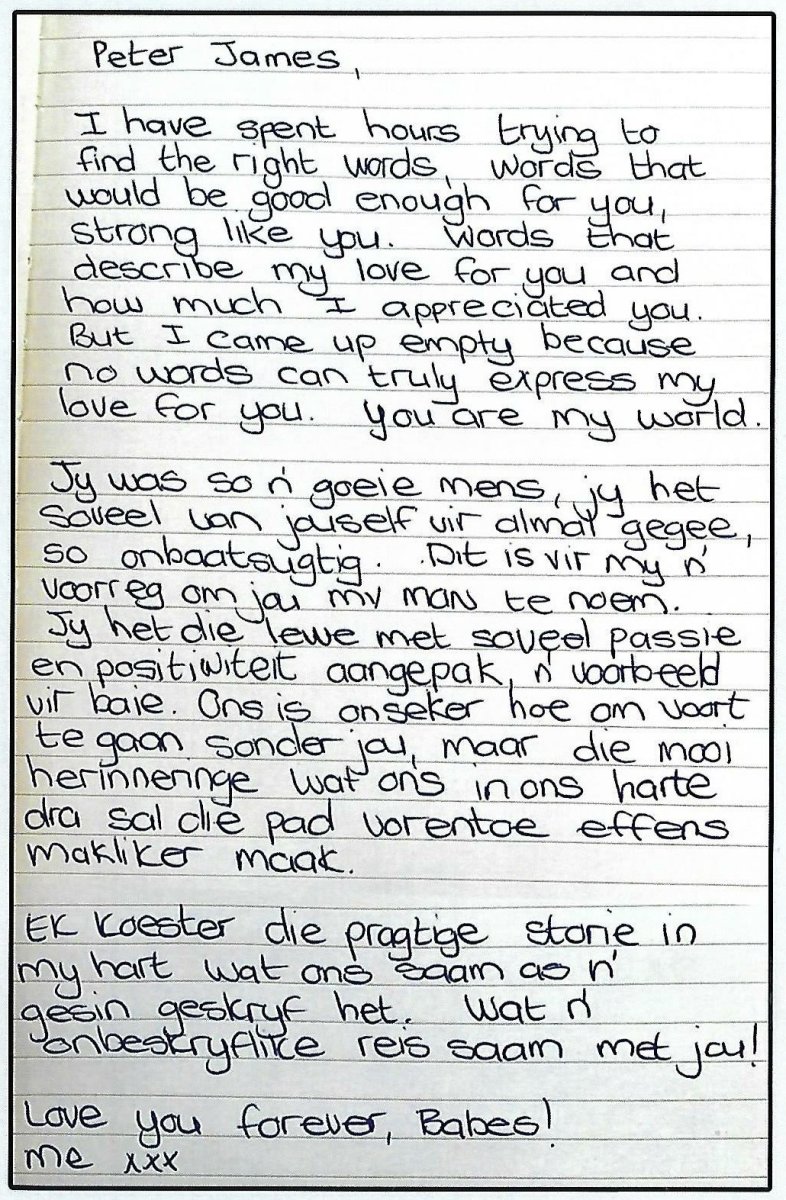 Peter James,
I have spent hours trying to
find the right words, words that
would be good enough for you,
strong like you. Words that
describe my love for you and
how much I appreciated you.
But I came up empty because
no words can truly express my
love for you. You are my world.
Jy was so n' goeie mens, jy het
soveel van jouself vir almal gegee,
so onbaatsugtig. Dit is vir my n'
voorreg om jou my man te noem.
Jy het die lewe met soveel passie
en positiwiteit aangepak, n' voorbeeld
vir baie. Ons is onseker hoe om voort
te gaan sonder jou, maar die mooi
herinneringe wat ons in ons harte
dra sal die pad vorentoe effens
makliker maak.
Ek koester die pragtige storie in
my hart wat ons saam as n'
gesin geskryf het. Wat n'
onbeskryflike reis saam met jou!
Love you forever, Babes!
me xxx